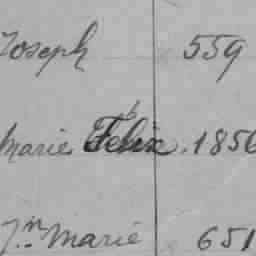 Joseph 559
Marie Felix. 1856
Jn Marie 651